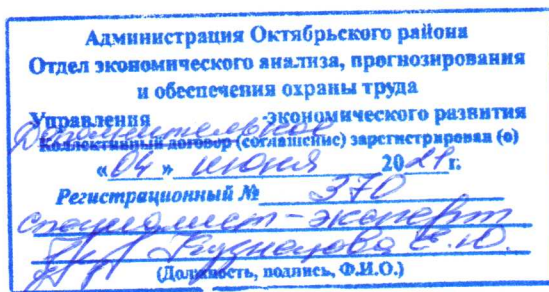 Администрация Октябрьского района
Отдел экономического анализа, прогнозирования
и обеспечения охраны труда
Управления экономического развития
Дополнительное
Коллективный договор (соглашение) зарегистрирован (о)
«04» июня 2021 г.
Регистрационный № 370
специалист-эксперт
Кузнецова Е.Ю.
(Должность, подпись, Ф.И.О.)